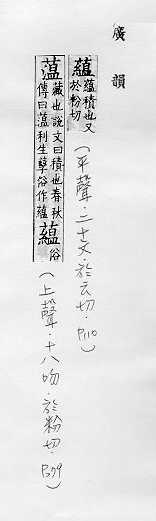 廣韻
蘊 蘊積也又於粉切 （平聲．二十文．於云切．P110）
薀 藏也說文曰積也春秋傳曰薀利生孽俗作蘊 蘊 俗 （上聲．十八吻．於粉切．P279）